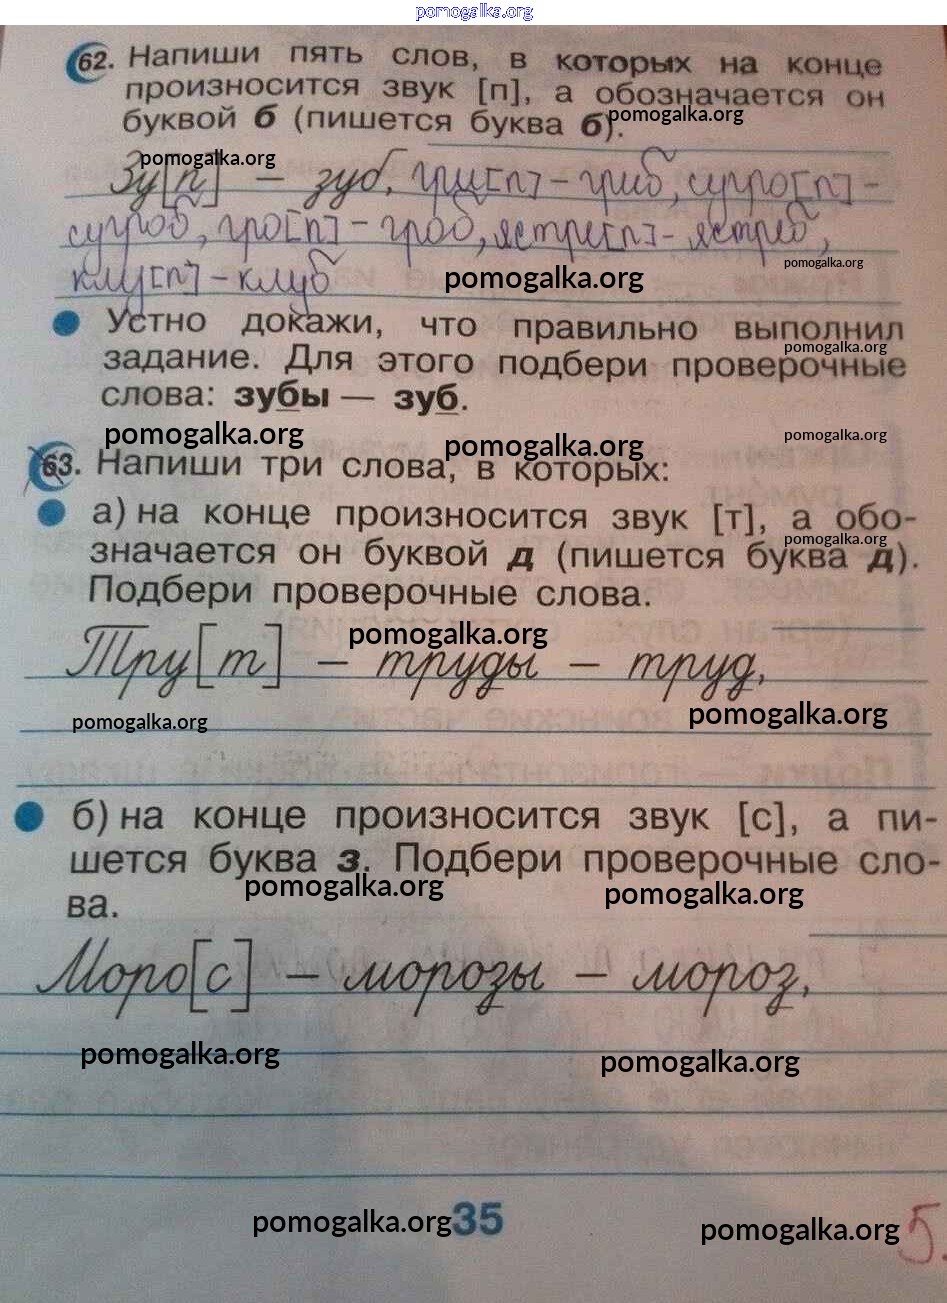 pomogalka.org
62. Напиши пять слов, в которых на конце
произносится звук [п], а обозначается он
буквой б (пишется буква б).
pomogalka.org
pomogalka.org
Зу[п] – зуб, гри[п] – гриб, сугро[п] –
сугроб, гро[п] – гроб, ястре[п] – ястреб,
клу[п] – клуб
pomogalka.org
pomogalka.org
Устно докажи, что правильно выполнил
pomogalka.org
задание. Для этого подбери проверочные
слова: зубы — зуб.
pomogalka.org
pomogalka.org
pomogalka.org
63. Напиши три слова, в которых:
а) на конце произносится звук [т], а обо-
pomogalka.org
значается он буквой д (пишется буква д).
Подбери проверочные слова.
pomogalka.org
Тру[т] – труды – труд,
pomogalka.org
pomogalka.org
б) на конце произносится звук [с], а пи-
шется буква з. Подбери проверочные сло-
pomogalka.org
pomogalka.org
ва.
Моро[с] – морозы – мороз,
pomogalka.org
pomogalka.org
pomogalka.org
35
pomogalka.org
5.